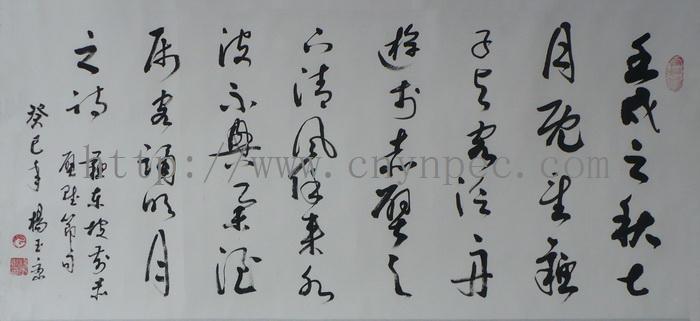 壬戌之秋七
月既望蘇
子与客泛舟
遊於赤壁之
下清風徐来水
波不興举酒
属客诵明月
之诗
蘇东坡前赤
壁赋節句
癸巳年 楊玉
http://www.cnynpec.com